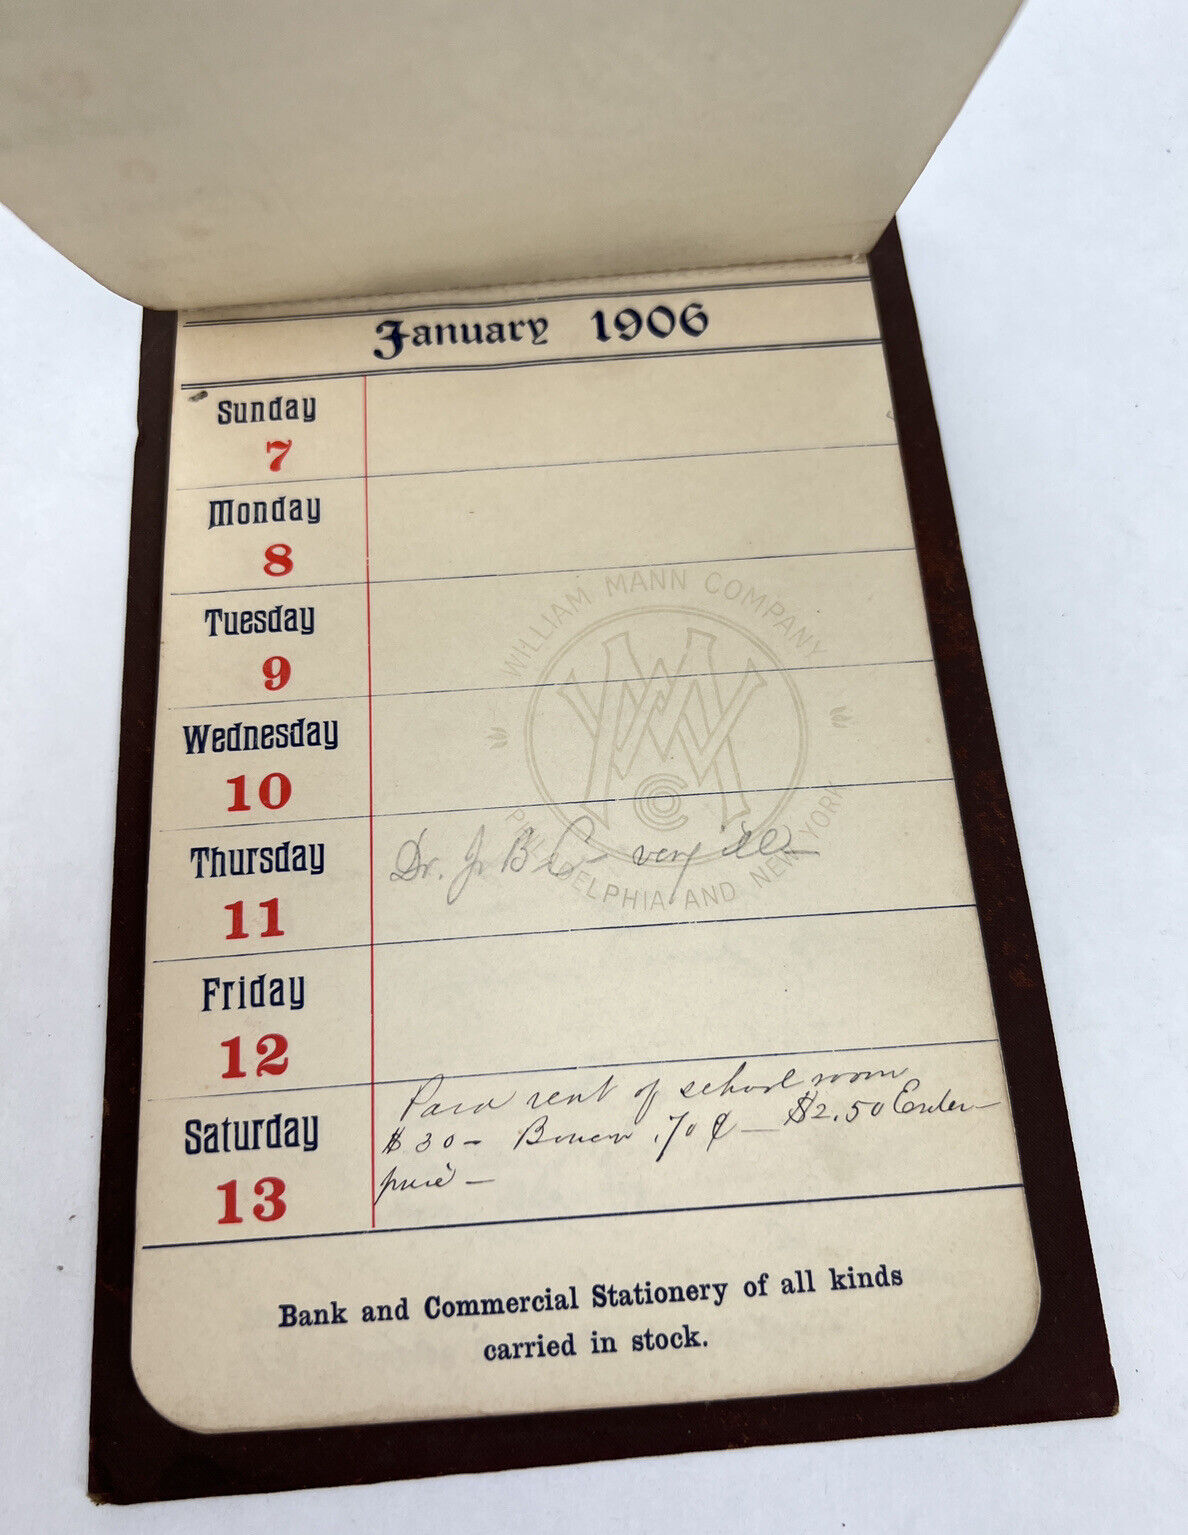 January 1906
Sunday
7
Monday
8
Tuesday
9
Wednesday
10
Thursday
11
Dr. J. B very ill
Friday
12
Saturday
13
Paid rent of school room
$30 – 70 ¢ — $2.50
WILLIAM MANN COMPANY
PHILADELPHIA AND NEW YORK
Bank and Commercial Stationery of all kinds
carried in stock.